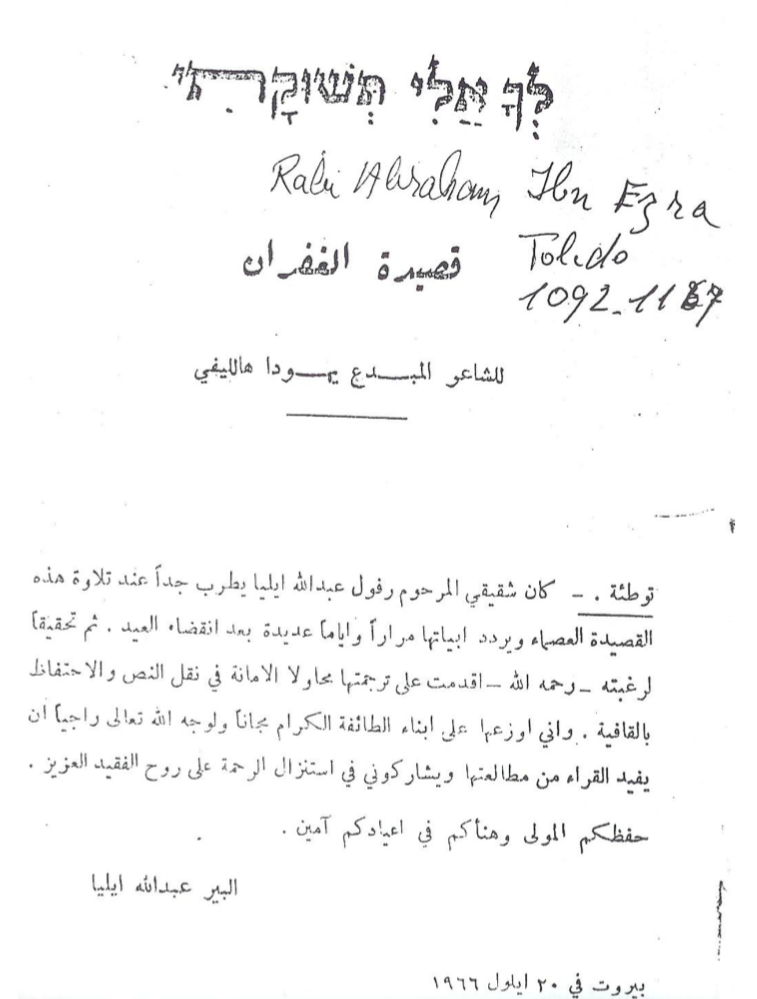 לְךָ אֵלִי תְּשׁוּקָתִי
Rabi Abraham Ibn Ezra
Toledo
1092-1167
قصيدة الغفران
للشاعر المبـــدع يهـــودا هالليفي
توطئة . – كان شقيقي المرحوم رفول عبدالله ايليا يطرب جداً عند تلاوة هذه
القصيدة العصماء ويردد ابياتها مراراً واياماً عديدة بعد انقضاء العيد . ثم تحقيقاً
لرغبته – رحمه الله – اقدمت على ترجمتها محاولا الامانة في نقل النص والاحتفاظ
بالقافية . واني اوزعها على ابناء الطائفة الكرام مجاناً ولوجه الله تعالى راجياً ان
يفيد القراء من مطالعتها ويشاركوني في استنزال الرحمة على روح الفقيد العزيز .
حفظكم المولى وهنأكم في اعيادكم آمين .
البير عبدالله ايليا
بيروت في ٢٠ ايلول ١٩٦٦